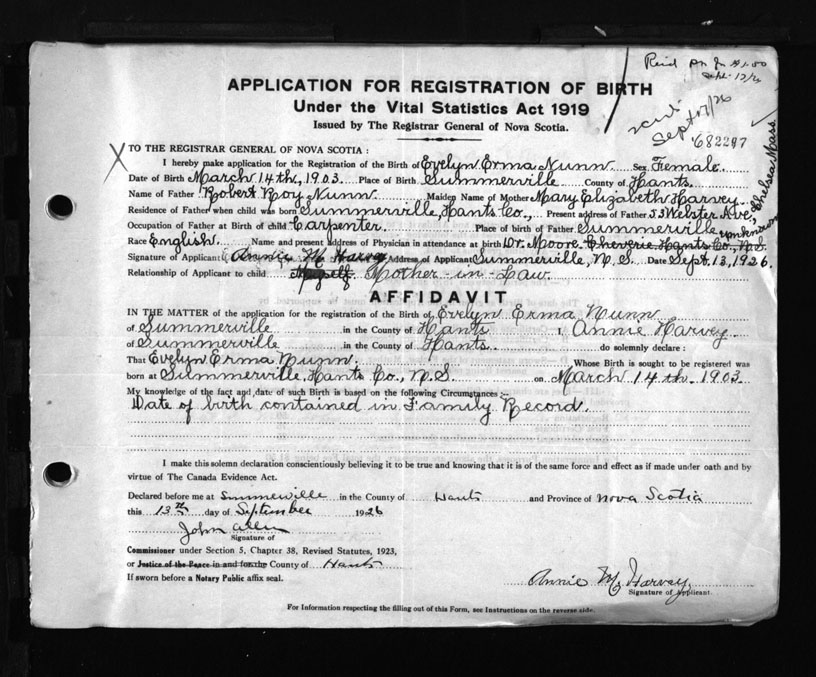 Sept. 17/26
Sept 17/26
682297
APPLICATION FOR REGISTRATION OF BIRTH
Under the Vital Statistics Act 1919
Issued by The Registrar General of Nova Scotia.
X TO THE REGISTRAR GENERAL OF NOVA SCOTIA :
I hereby make application for the Registration of the Birth of Evelyn Erma Nunn Sex Female.
Date of Birth March 14th, 1903. Place of Birth Summerville County of Hants.
Name of Father Robert Roy Nunn Maiden Name of Mother Mary Elizabeth Harvey
Residence of Father when child was born Summerville, Hants Co., Present address of Father 53 Webster Ave, Chelsea Mass.
Occupation of Father at Birth of child Carpenter. Place of birth of Father Summerville
Race English Name and present address of Physician in attendance at birth Dr. Moore. Cheverie Hants Co., N.S. unknown
Signature of Applicant Annie M Harvey Address of Applicant Summerville, N. S. Date Sept. 13, 1926.
Relationship of Applicant to child Myself Mother-in-Law.
AFFIDAVIT
IN THE MATTER of the application for the registration of the Birth of Evelyn Erma Nunn
of Summerville in the County of Hants I, Annie Harvey
of Summerville in the County of Hants. do solemnly declare :
That Evelyn Erma Nunn. Whose Birth is sought to be registered was
born at Summerville, Hants Co., N.S. on March 14th. 1903.
My knowledge of the fact and date of such Birth is based on the following Circumstances :-
Date of birth contained in Family Record.
I make this solemn declaration conscientiously believing it to be true and knowing that it is of the same force and effect as if made under oath and by
virtue of The Canada Evidence Act.
Declared before me at Summerville in the County of Hants and Province of Nova Scotia
this 13th day of September 1926
John Allen
Signature of
Commissioner under Section 5, Chapter 38, Revised Statutes, 1923,
or Justice of the Peace in and for the County of Hants
If sworn before a Notary Public affix seal.
Annie M. Harvey.
Signature of Applicant.
For Information respecting the filling out of this Form, see Instructions on the reverse side.